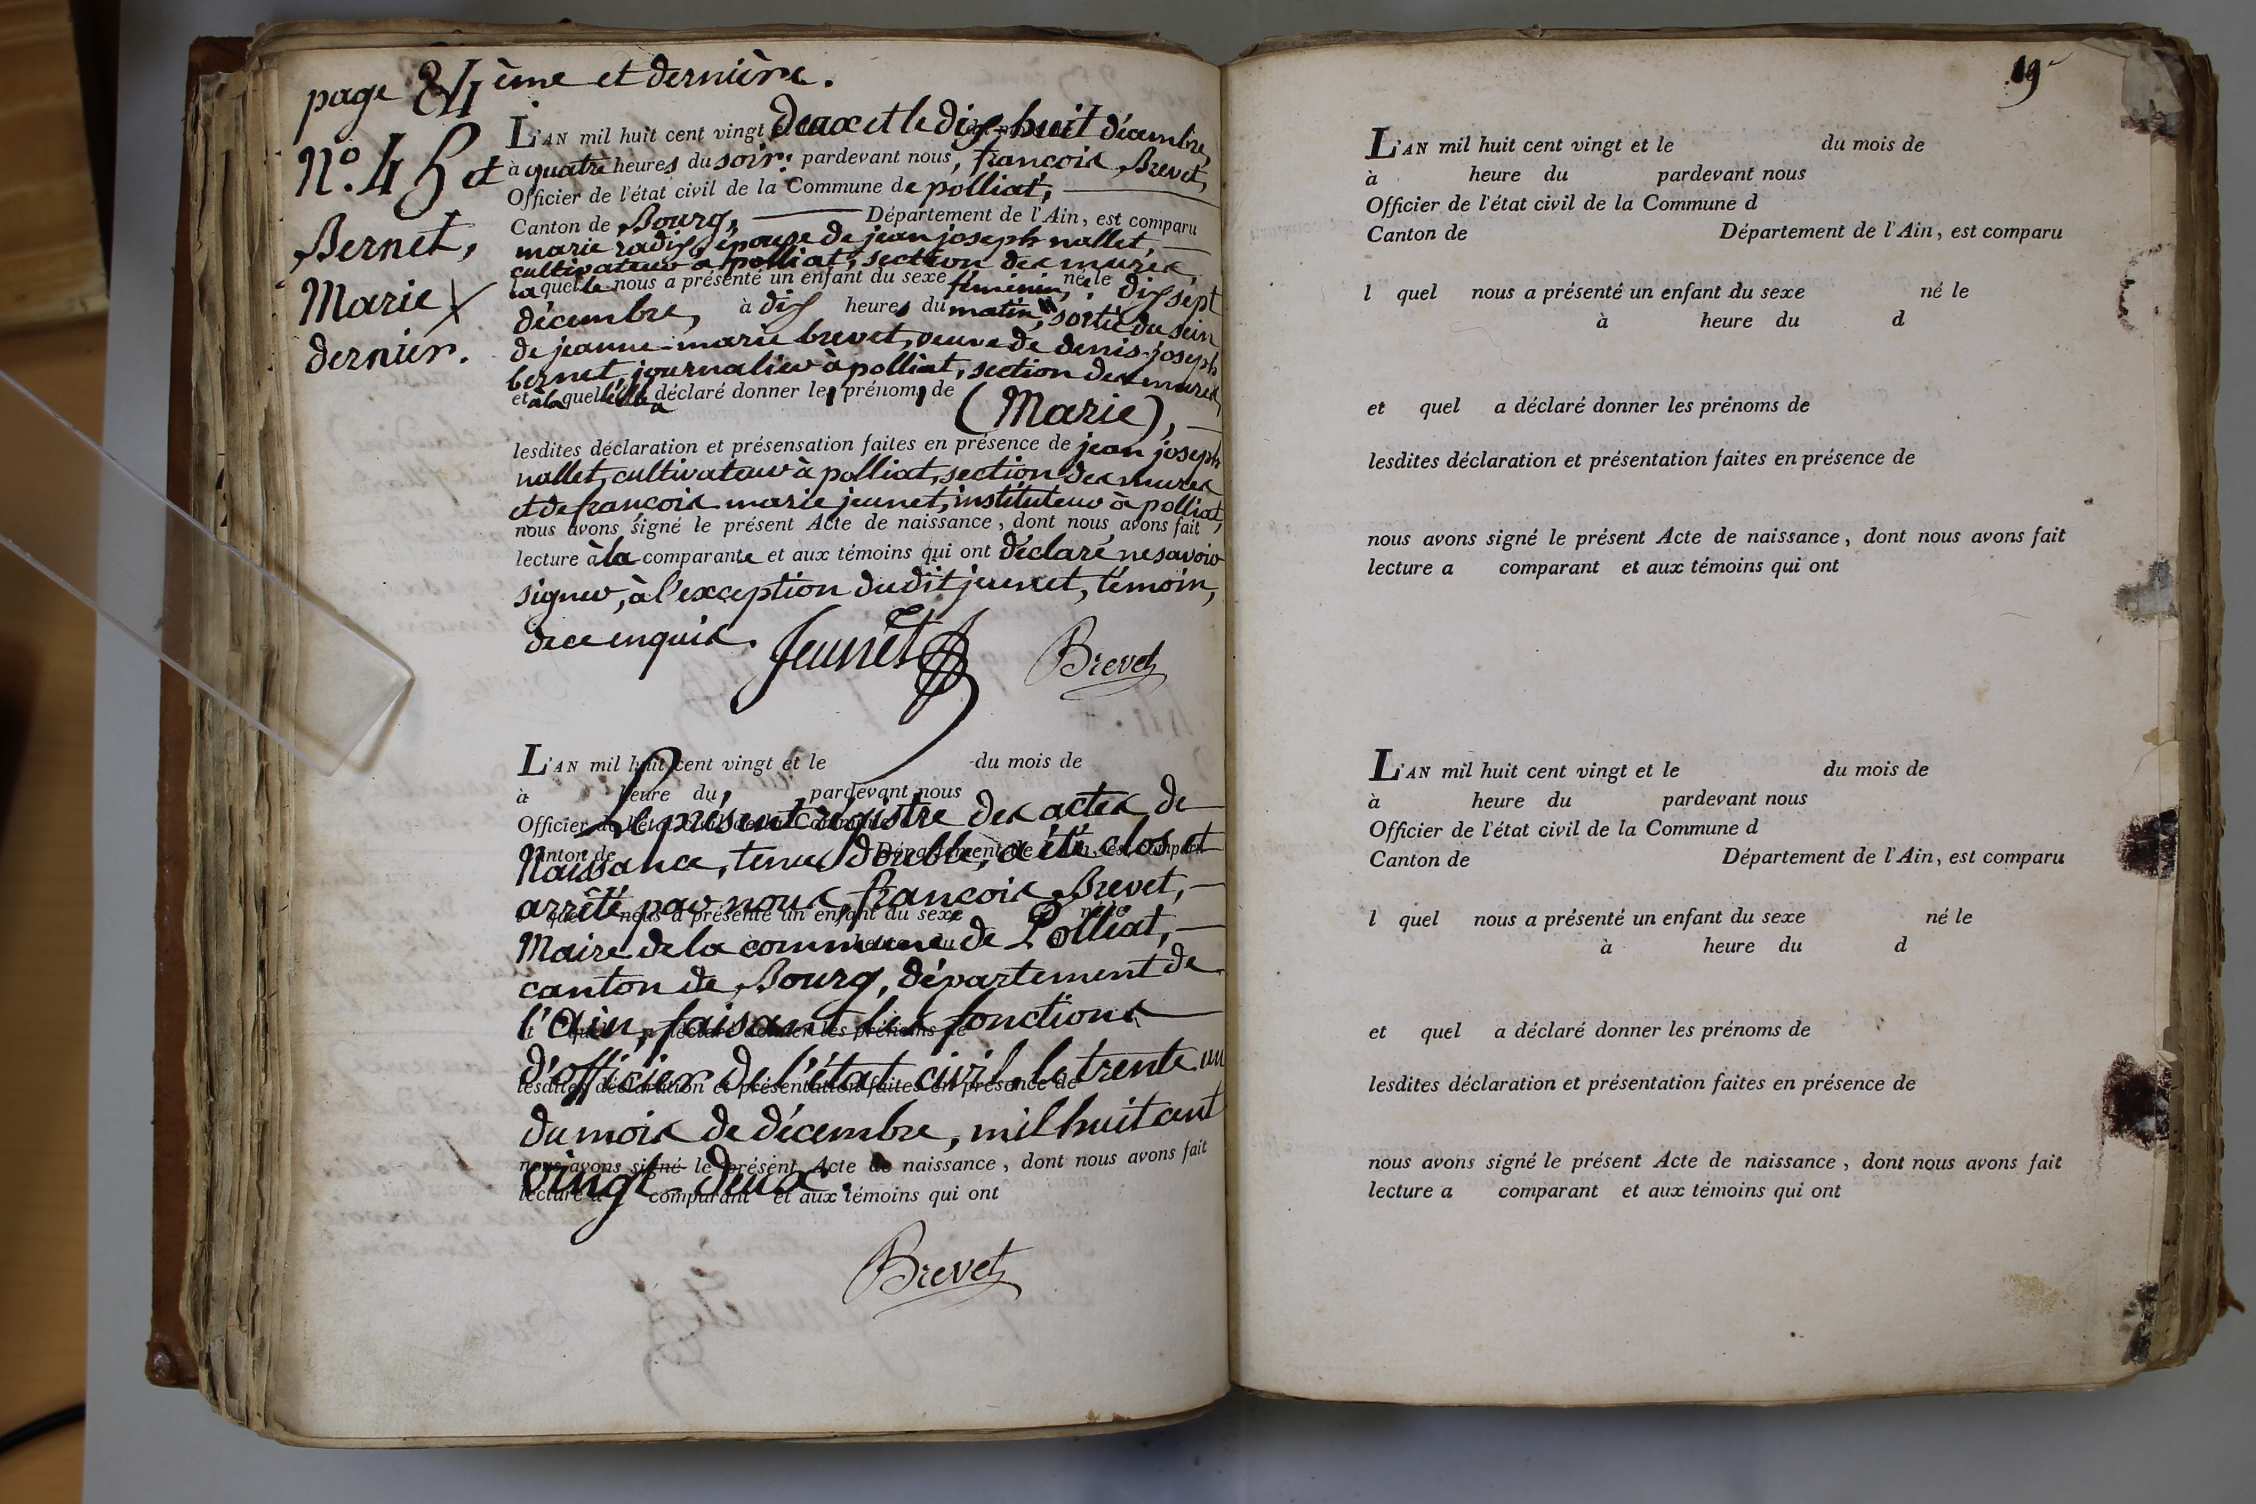 page 24ème et dernière.
N.° 45 et
Bernet,
Marie
dernier.
L'AN mil huit cent vingt deux et le dix huit décembre,
à quatre heures du soir, pardevant nous, françois Brevet,
Officier de l'état civil de la Commune de polliat,
Canton de Bourg, Département de l'Ain, est comparu
marie radix épouse de jean joseph nallet,
cultivateur à polliat, section des mures,
laquelle nous a présenté un enfant du sexe féminin, née le dix sept
décembre, à dix heures du matin, sortie du sein
de jeanne-marie brevet, veuve de denis-joseph
bernet, journalier à polliat, section des mures,
et à laquelle elle a déclaré donner le prénom de
(Marie),
lesdites déclaration et présensation faites en présence de jean joseph
nallet, cultivateur à polliat, section des mures
et de françois marie jeunet, instituteur à polliat,
nous avons signé le présent Acte de naissance, dont nous avons fait
lecture à la comparante et aux témoins qui ont déclaré ne savoir
signer, à l'exception dudit jeunet, témoin,
de ce enquis.
Jeunet Brevet
L'AN mil huit cent vingt et le du mois de
à heure du pardevant nous
Le présent régistre des actes de
Officier de l'état civil de la Commune d
Canton de Département de l'Ain, est comparu
Naissance, tenu double, a été clos et
arrêté par nous, françois Brevet,
l quel nous a présenté un enfant du sexe né le
Maire de la commune de Polliat,
à heure du
canton de Bourg, département de
l'Ain, faisant les fonctions
et quel a déclaré donner les prénoms de
d'officier de l'état civil, le trente un
lesdites déclaration et présentation faites en présence de
du mois de décembre, mil huit cent
nous avons signé le présent Acte de naissance, dont nous avons fait
vingt-deux.
lecture a comparant et aux témoins qui ont
Brevet
19
L'AN mil huit cent vingt et le du mois de
à heure du pardevant nous
Officier de l'état civil de la Commune d
Canton de Département de l'Ain, est comparu
l quel nous a présenté un enfant du sexe né le
à heure du d
et quel a déclaré donner les prénoms de
lesdites déclaration et présentation faites en présence de
nous avons signé le présent Acte de naissance, dont nous avons fait
lecture a comparant et aux témoins qui ont
L'AN mil huit cent vingt et le du mois de
à heure du pardevant nous
Officier de l'état civil de la Commune d
Canton de Département de l'Ain, est comparu
l quel nous a présenté un enfant du sexe né le
à heure du d
et quel a déclaré donner les prénoms de
lesdites déclaration et présentation faites en présence de
nous avons signé le présent Acte de naissance, dont nous avons fait
lecture a comparant et aux témoins qui ont